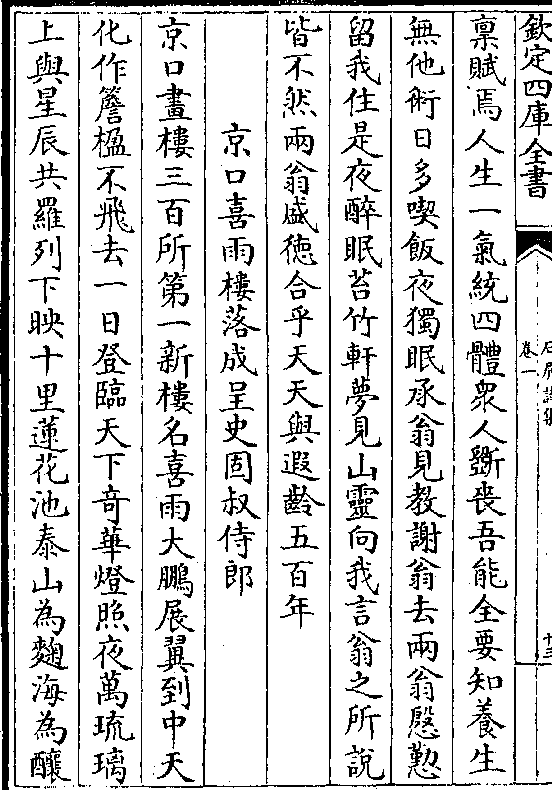 欽定四庫全書
石屏詩集
卷一
十三
稟賦焉人生一氣統四體衆人斲喪吾能全要知養生
無他術日多喫飯夜獨眠承翁見教謝翁去兩翁慇懃
留我住是夜醉眠苔竹軒夢見山靈向我言翁之所說
皆不然兩翁盛徳合乎天天與遐齡五百年
京口喜雨樓落成呈史固叔侍郎
京口畫樓三百所第一新樓名喜雨大鵬展翼到中天
化作簷楹不飛去一日登臨天下竒華燈照夜萬琉璃
上與星辰共羅列下映十里蓮花池泰山為麴海為釀